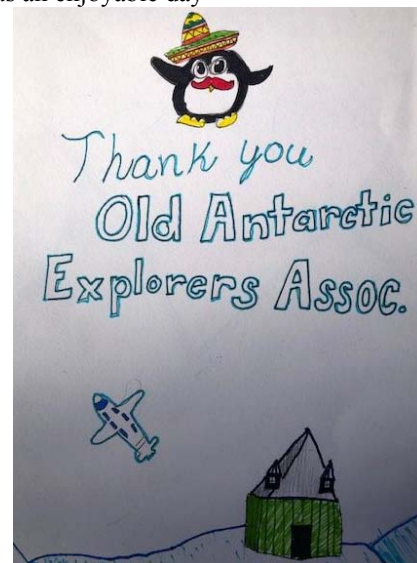 as an enjoyable day
Thank you
Old Antarctic
Explorers Assoc.